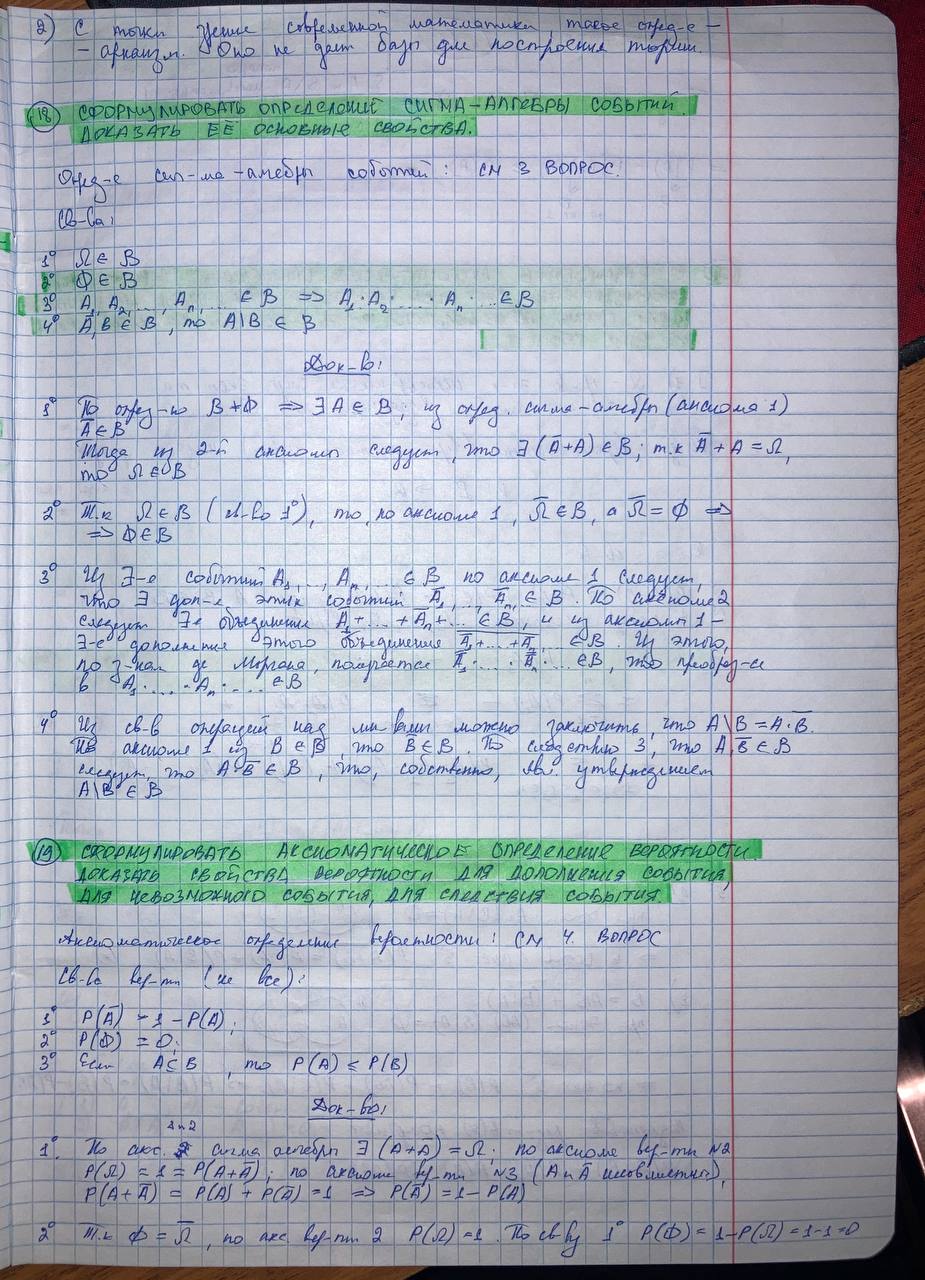 2) С точки зрения современной математики такое опред-е -
- архаизм. Оно не дает базы для построения теории.
18 СФОРМУЛИРОВАТЬ ОПРЕДЕЛЕНИЕ СИГМА-АЛГЕБРЫ СОБЫТИЙ.
ДОКАЗАТЬ ЕЁ ОСНОВНЫЕ СВОЙСТВА.
Опред-е сиг-ма-алгебры событий: СМ 3 ВОПРОС.
Св-ва:
1° Ω ∈ B
2° Ф ∈ B
3° A₁, A₂, ..., Aₙ, ... ∈ B ⇒ A₁·A₂·...·Aₙ·... ∈ B
4° A, B ∈ B, то A\B ∈ B
Док-во:
1° По опред-ю B ≠ Ф ⇒ ∃ A ∈ B; из опред. сигма-алгебры (аксиома 1)
A̅ ∈ B
Тогда из 2-й аксиомы следует, что ∃ (A̅+A) ∈ B; т.к A̅ + A = Ω,
то Ω ∈ B
2° Т.к Ω ∈ B (св-во 1°), то, по аксиоме 1, Ω̅ ∈ B, а Ω̅ = Ф ⇒
⇒ Ф ∈ B
3° Из ∃-е событий A₁, ..., Aₙ, ... ∈ B по аксиоме 1 следует,
что ∃ доп-е этих событий A̅₁, ... A̅ₙ, ∈ B. По аксиоме 2
следует ∃-е объединения A̅₁+...+A̅ₙ+... ∈ B, и из аксиомы 1 -
∃-е дополнения этого объединения A̅₁+...+A̅ₙ... ∈ B. Из этого,
по з-нам де Моргана, получается A̿₁·...·A̿ₙ·... ∈ B, что преобраз-ся
в A₁·...·Aₙ·... ∈ B
4° Из св-в операций над мн-вами можно заключить, что A\B = A·B̅.
По аксиоме 1 из B ∈ B, что B̅ ∈ B. По следствию 3, что A, B̅ ∈ B
следует, что A·B̅ ∈ B, что, собственно, явл. утверждением
A\B ∈ B
19 СФОРМУЛИРОВАТЬ АКСИОМАТИЧЕСКОЕ ОПРЕДЕЛЕНИЕ ВЕРОЯТНОСТИ.
ДОКАЗАТЬ СВОЙСТВА ВЕРОЯТНОСТИ ДЛЯ ДОПОЛНЕНИЯ СОБЫТИЯ,
ДЛЯ НЕВОЗМОЖНОГО СОБЫТИЯ, ДЛЯ СЛЕДСТВИЯ СОБЫТИЯ.
Аксиоматическое определение вероятности: СМ 4. ВОПРОС
Св-ва вер-ти (не все):
1° P(A̅) = 1 - P(A);
2° P(Ф) = 0;
3° Если A ⊆ B, то P(A) ≤ P(B)
Док-во:
1 и 2
1. По акс. сигма алгебры ∃ (A+A̅) = Ω; по аксиоме вер-ти №2
P(Ω) = 1 = P(A+A̅); по аксиоме вер-ти №3 (A и A̅ несовместны),
P(A+A̅) = P(A) + P(A̅) = 1 ⇒ P(A̅) = 1 - P(A)
2° Т.к Ф = Ω̅, по акс вер-ти 2 P(Ω) = 1. По св-ву 1° P(Ф) = 1 - P(Ω) = 1 - 1 = 0